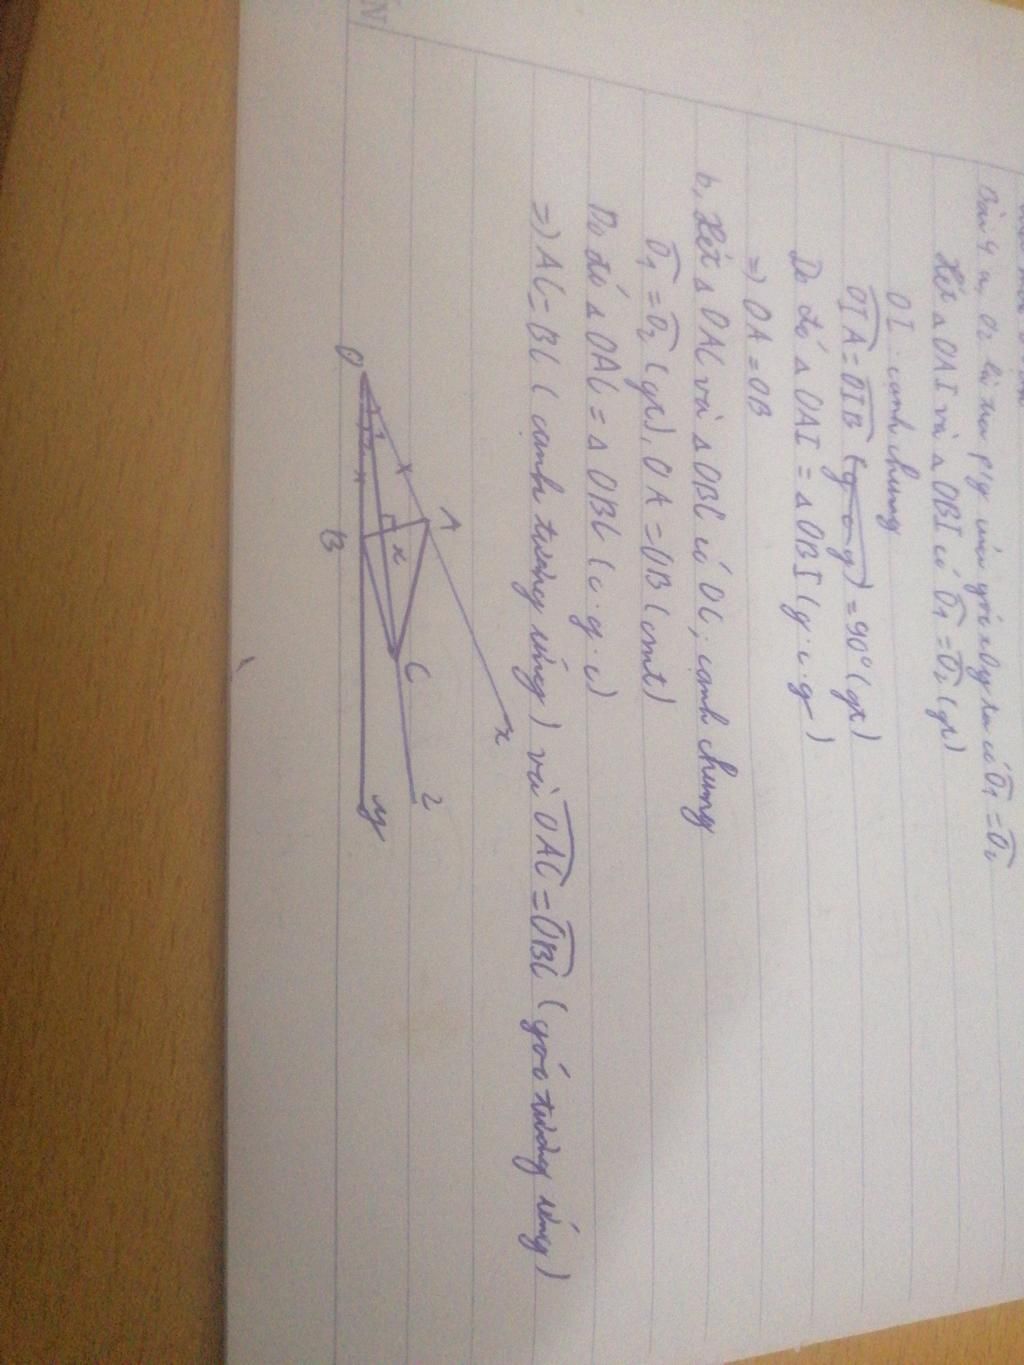 Bài 4 a, Oz là tia p/g của góc xOy ta có Ô1 = Ô2
Xét Δ OAI và Δ OBI có Ô1 = Ô2 (gt)
OI : cạnh chung
OIA = OIB = 90° (gt)
Do đó Δ OAI = Δ OBI (g.c.g)
=> OA = OB
b, Xét Δ OAC và Δ OBC có OC : cạnh chung
Ô1 = Ô2 (gt), OA = OB (cmt)
Do đó Δ OAC = Δ OBC (c.g.c)
=> AC = BC (cạnh tương ứng) và OAC = OBC (góc tương ứng)
x
A
z
C
O
1
2
B
y
N